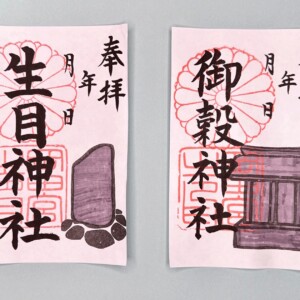 奉拝
年
月　日
生目神社
年
月　日
御穀神社